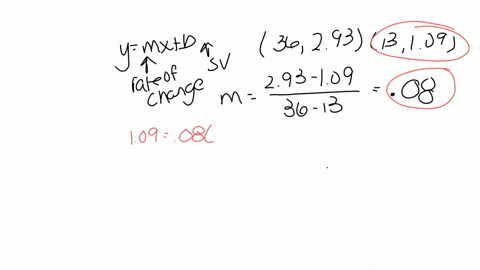 y=mx+b
SV
rate of
change
(36, 2.93) (13, 1.09)
m = 2.93-1.09 / 36-13 = .08
1.09 = .08(